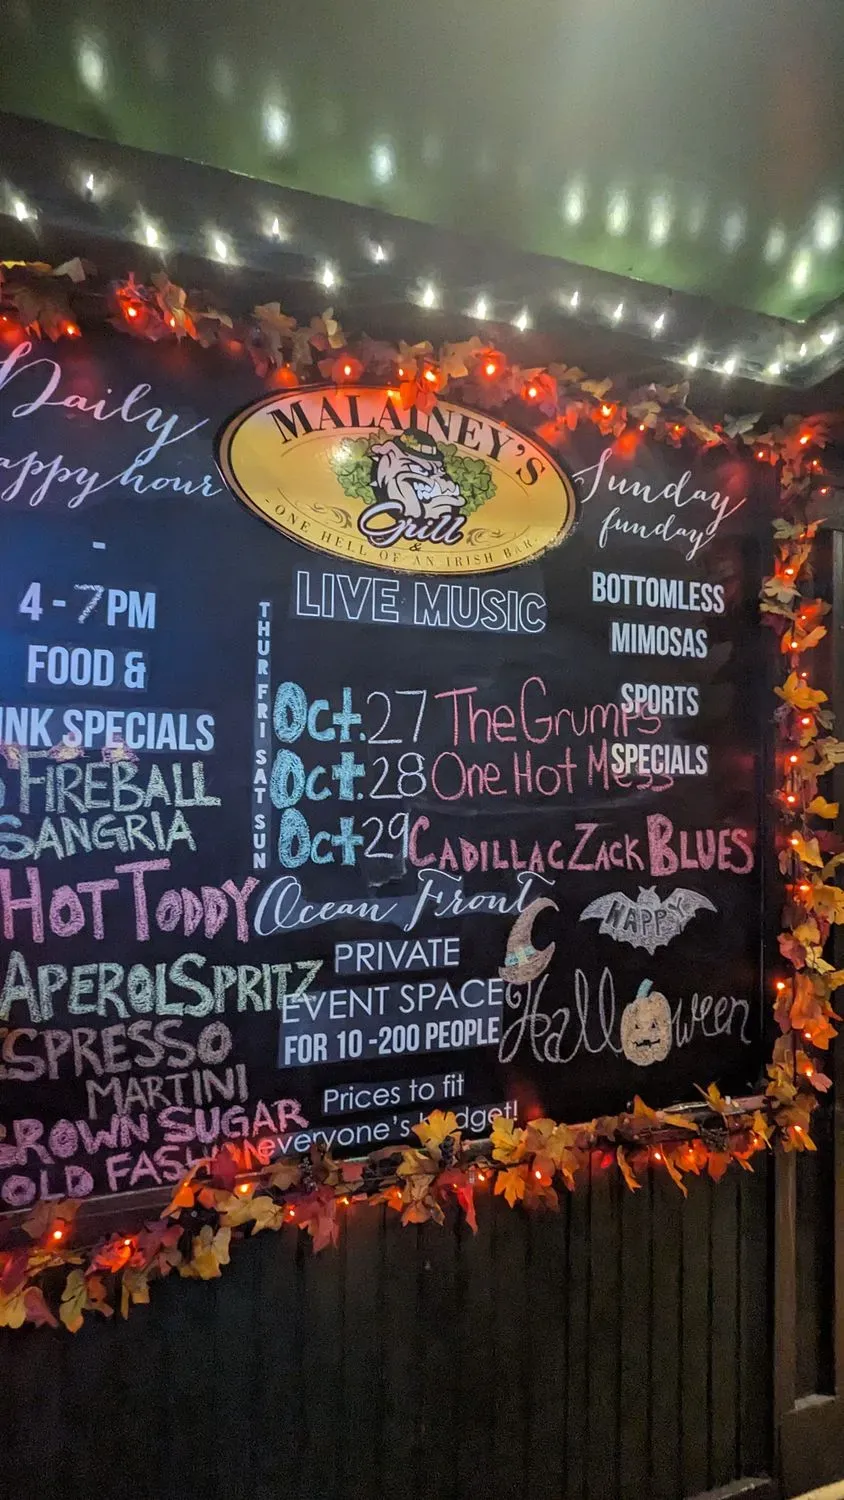 Daily
appy hour
-
4-7PM
FOOD &
INK SPECIALS
FIREBALL
SANGRIA
HOT TODDY
APEROL SPRITZ
SPRESSO
MARTINI
BROWN SUGAR
OLD FASHION
MALAINEY'S
Grill
&
- ONE HELL OF AN IRISH BAR -
LIVE MUSIC
THUR FRI SAT SUN
Oct. 27 The Grumps
Oct. 28 One Hot Mess
Oct 29 CADILLAC ZACK BLUES
Ocean Front
PRIVATE
EVENT SPACE
FOR 10-200 PEOPLE
Prices to fit
everyone's budget!
Sunday
funday
BOTTOMLESS
MIMOSAS
SPORTS
SPECIALS
HAPPY
Halloween